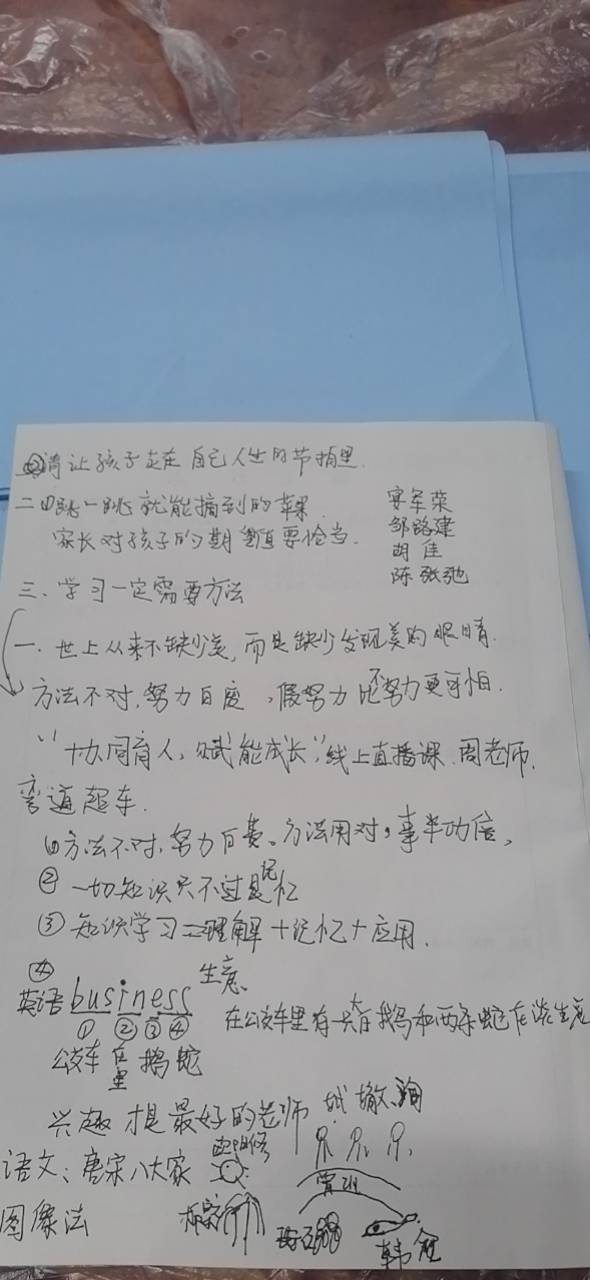 ②请让孩子走在自己人生的节拍里.
二.①跳一跳就能摘到的苹果.
家长对孩子的期望值要恰当.
宋军荣
邹路建
胡佳
陈张弛
三、学习一定需要方法
一.世上从来不缺少美,而是缺少发现美的眼睛.
方法不对,努力白度,假努力比不努力更可怕.
"协同育人,赋能成长",线上直播课.周老师.
弯道超车.
①方法不对,努力白费。方法用对,事半功倍。
② 一切知识只不过是记忆
③ 知识学习=理解+记忆+应用.
④
英语 business 生意.
① ② ③ ④
在公交车里有一只大白鹅和两条蛇在谈生意
公交车 在里 鹅 蛇
兴趣才是最好的老师 轼 辙 洵
语文:唐宋八大家 欧阳修
曾巩
图像法 柳宗 王安石 韩愈